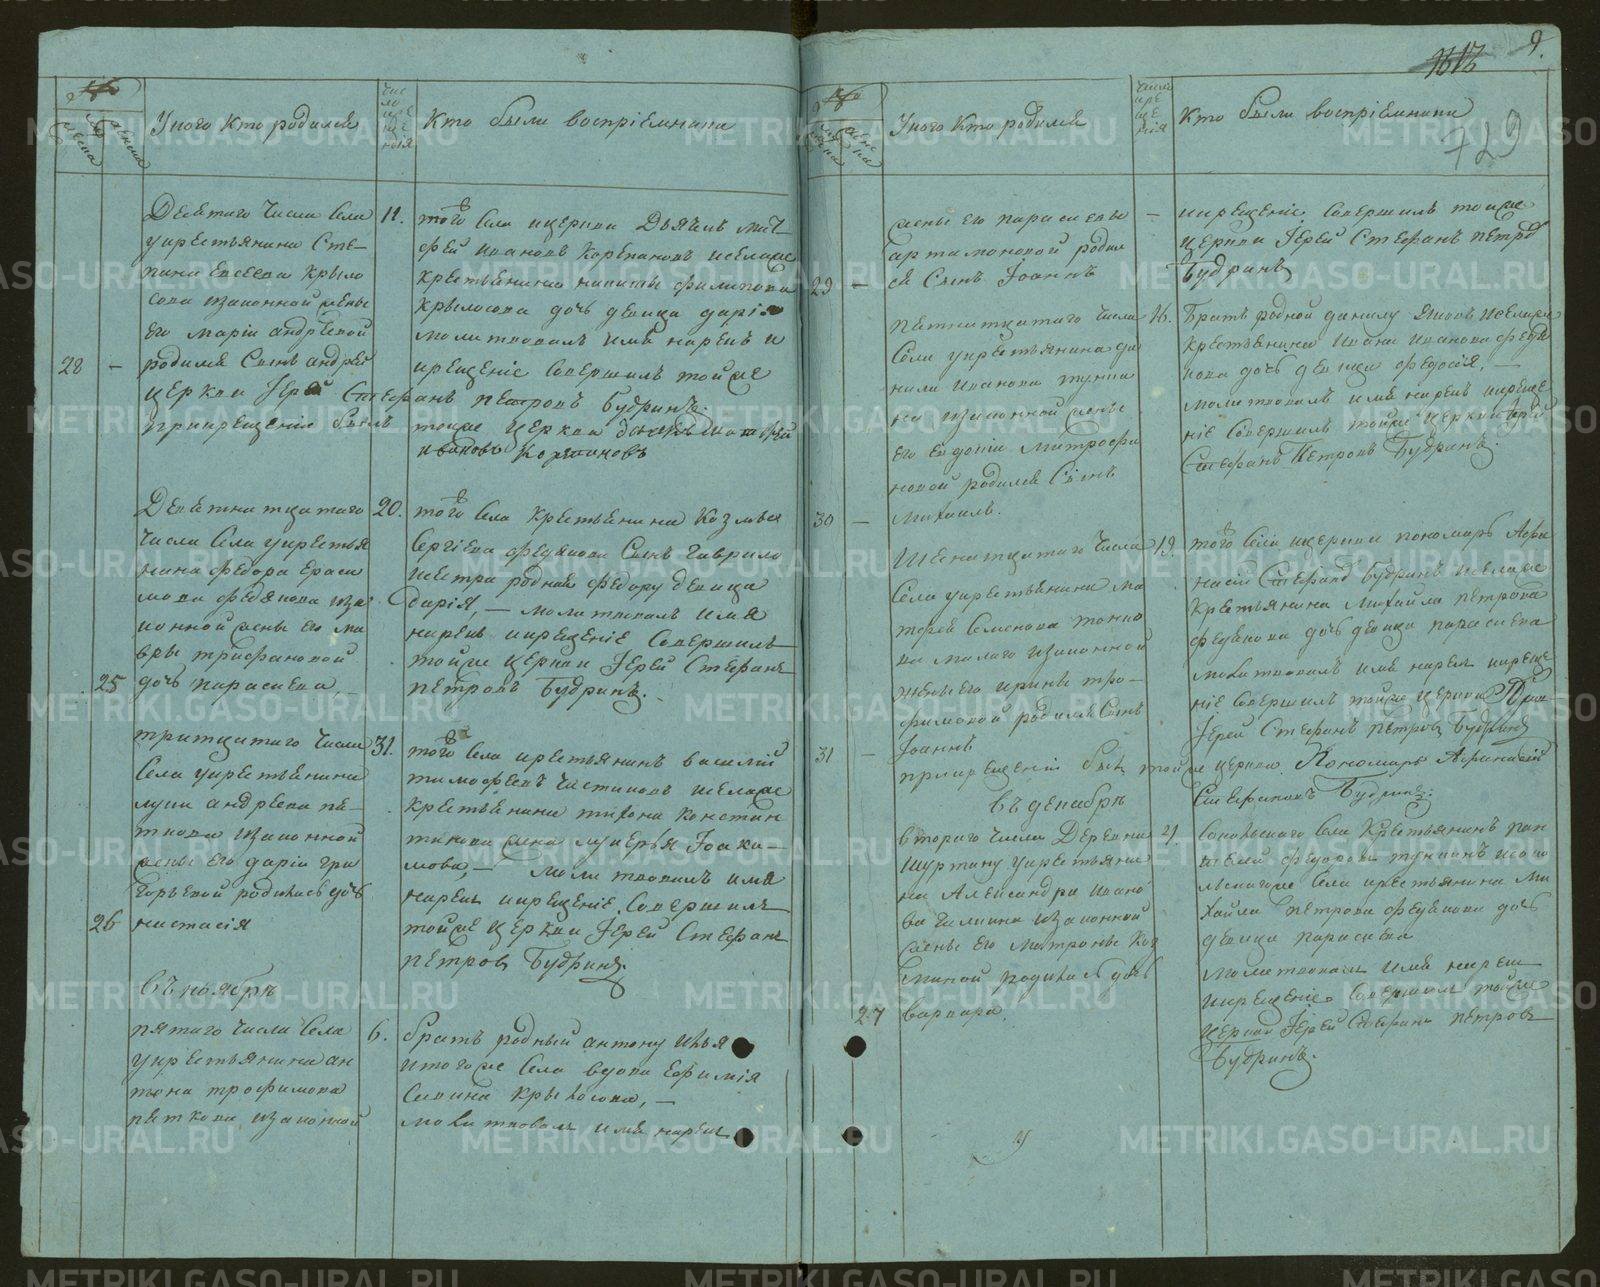 У кого кто родился
Число крещенія
Кто были воспріемники
Десятаго числа села
у крестьянина Сте-
пана Евсеева Крыло
сова и законной жены
его Маріи Андреевой
28 — родился сынъ Андрей
11. того села церкви Дьячекъ Мат-
фей Ивановъ Корепановъ и села же
крестьянина Никиты Филипова
Крылосова дочь девица Дарія
молитвовалъ имя нарекъ и
крещеніе совершилъ той же
церкви Іерей Стефанъ Петровъ Будринъ.
при крещеніи былъ той же церкви дьячекъ Матфей
Ивановъ Корепановъ
Девятнатцатаго
числа села у крестья
нина Федора Ераси
мова Федякова и за
конной жены его Ма
вры Трифановой
25 дочь Параскева
20. того села крестьянина Козмы
Сергіева Федякова сынъ Гаврило
и сестра родная Федору девица
Дарія, — молитвовалъ имя
нарекъ и крещеніе совершилъ
той же церкви Іерей Стефанъ
Петровъ Будринъ. —
тритцатаго числа
села у крестьянина
Луки Андреева Пя-
ткова и законной
жены его Даріи Гри
горьевой родилась дочь
26 Настасія
31. того села крестьянинъ Василій
Тимофеевъ Чистяковъ и села же
крестьянина Тихона Констан
тинова жена Лукерья Іоаки-
мова, — молитвовалъ имя
нарекъ и крещеніе совершилъ
той же церкви Іерей Стефанъ
Петровъ Будринъ.
въ ноябрѣ
пятаго числа села
у крестьянина Ан
тона Трофимова
Пяткова и законной
6. братъ родный Антону Илья
и того же села вдова Ефимія
Савина Крылосова, —
молитвовалъ имя нарекъ
9.
729
У кого кто родился
Число крещенія
Кто были воспріемники
жены его Параскевы
Артамоновой родил
29 — ся сынъ Іоаннъ
— и крещеніе совершилъ той же
церкви Іерей Стефанъ Петровъ
Будринъ
пятнатцатаго числа
села у крестьянина Да
нила Иванова Тунки
на и законной жены
его Евдокіи Митрофа
новой родился сынъ
30 — Михаилъ.
16. Братъ родной Данилу Яковъ и села же
крестьянина Ивана Иванова Федя
кова дочь девица Федосія, —
молитвовалъ имя нарекъ и креще
ніе совершилъ той же церкви Іерей
Стефанъ Петровъ Будринъ.
Шеснатцатаго числа
села у крестьянина Ма
тфея Семенова
и законной
жены его Ирины Тро-
фимовой родился сынъ
31 — Іоаннъ
19. того села церкви пономарь Афа
насій Стефановъ Будринъ и села же
крестьянина Михайла Петрова
Федякова дочь девица Параскева
молитвовалъ имя нарекъ и креще
ніе совершилъ той же церкви
Іерей Стефанъ Петровъ Будринъ
при крещеніи былъ той же церкви Пономарь Афанасій
Стефановъ Будринъ.
въ декабрѣ
втораго числа деревни
Шуртану у крестьяни
на Александра Ивано
ва и законной
жены его Матроны Коз
миной родилась дочь
27 Варвара.
4. Сокольскаго села крестьянинъ Пан
телей Федоровъ Тункинъ и
села крестьянина Ми
хайла Петрова Федякова дочь
девица Параскева
молитвовалъ имя нарекъ
и крещеніе совершилъ той же
церкви Іерей Стефанъ Петровъ
Будринъ.
METRIKI.GASO-URAL.RU